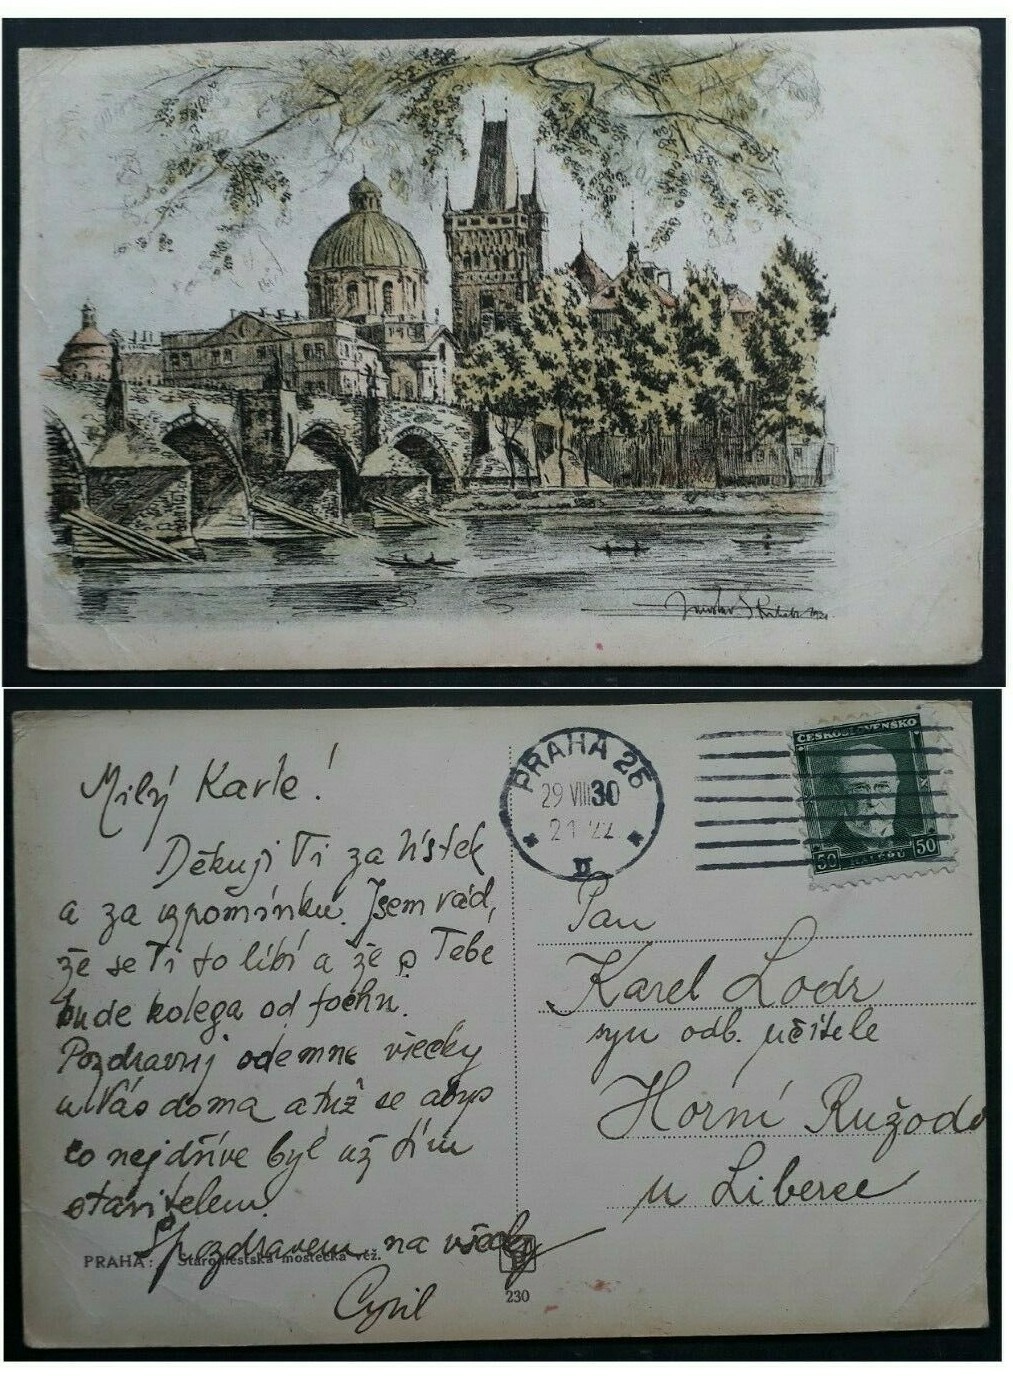 Milý Karle!
Děkuji Ti za lístek
a za vzpomínku. Jsem rád,
že se Ti to líbí a že z Tebe
bude kolega od fochu.
Pozdravuj odemne všecky
u Vás doma a tuž se abys
co nejdříve byl už tím
stavitelem.
S pozdravem na všecky
Cyril
PRAHA: Staroměstská mostecká věž.
230
PRAHA 25
29 VIII 30
21 22
II
ČESKOSLOVENSKO
50 HALÉŘŮ 50
Pan
Karel Lodr
syn odb. učitele
Horní Ružodol
u Liberce